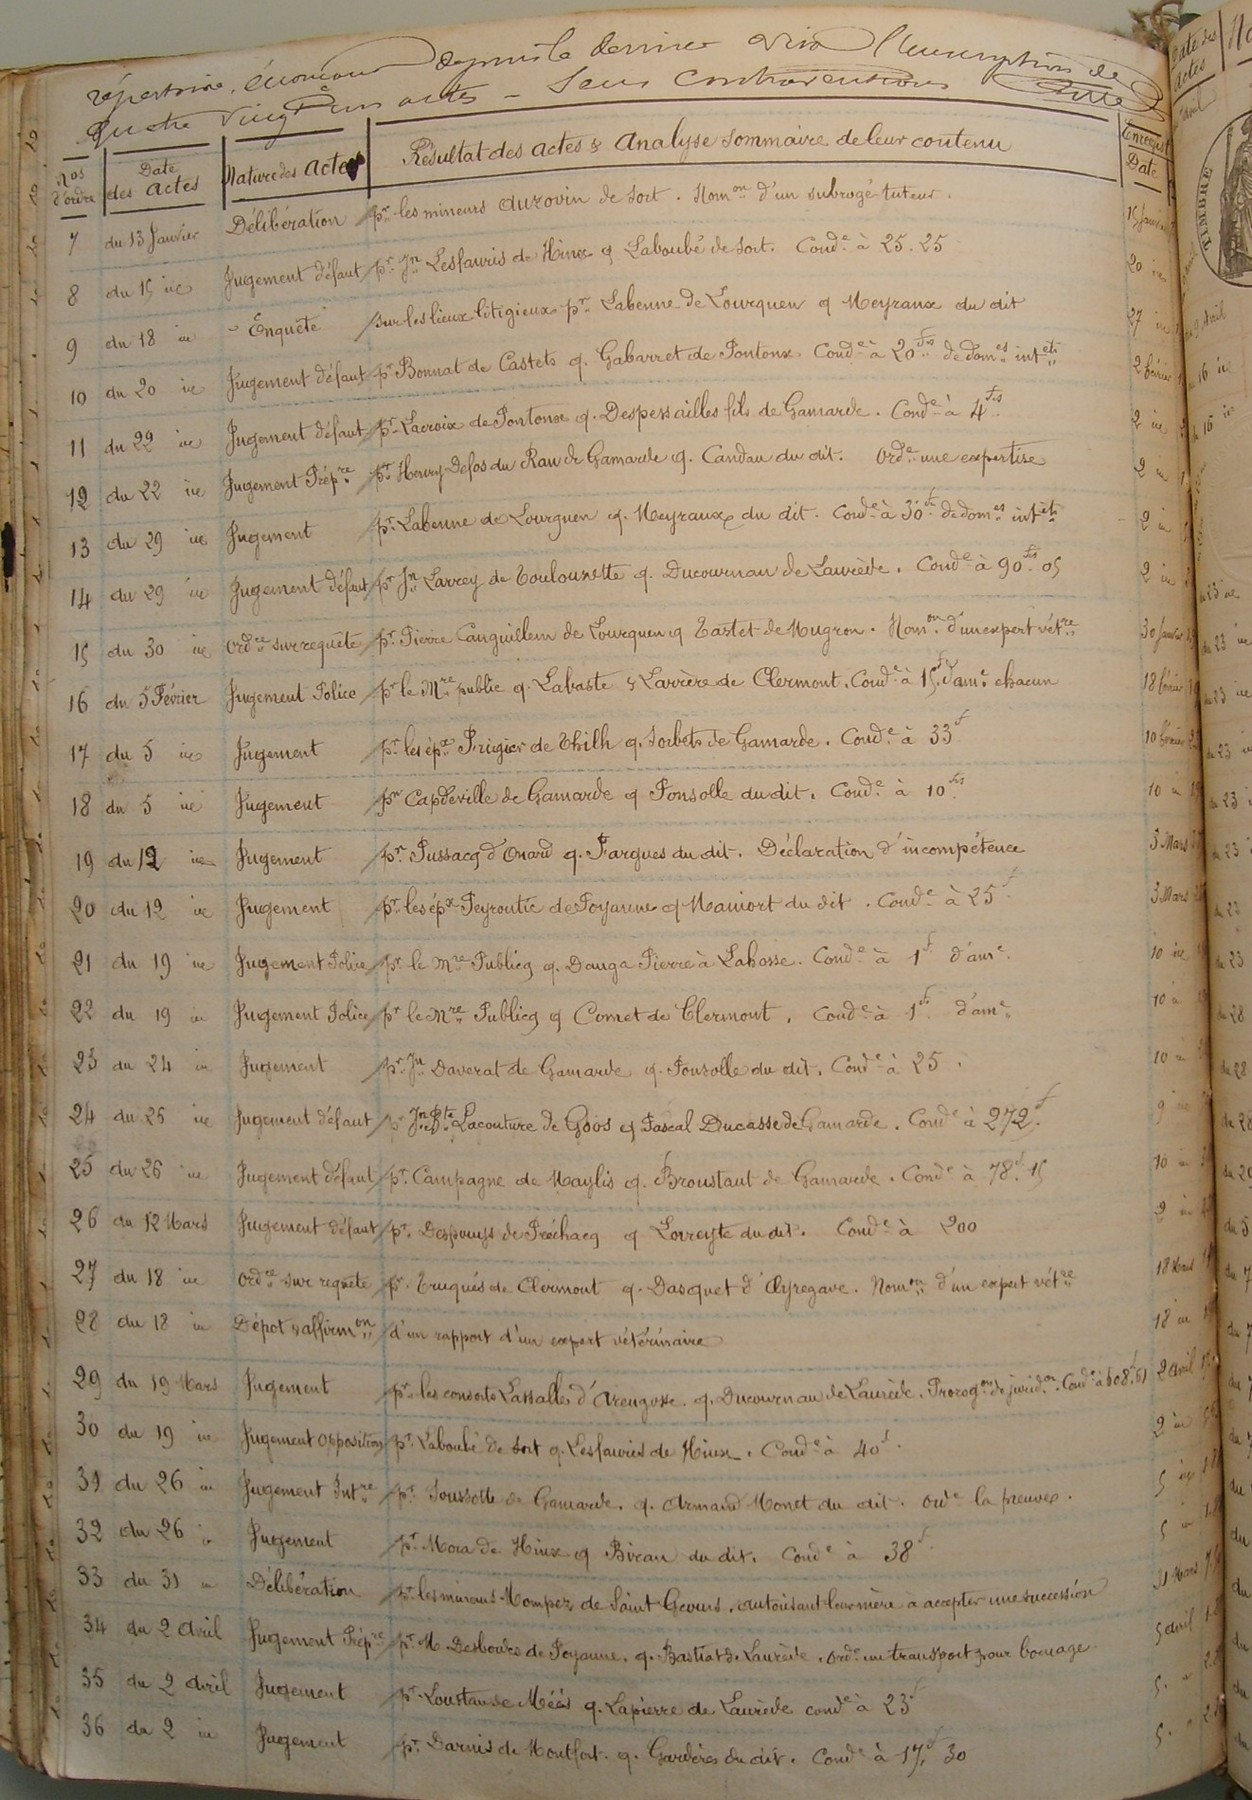 répertoire, énonçant depuis le dernier visa l'inscription de
quatre vingt un actes - Sans contraventions
Nos d'ordre | Date des actes | Nature des Actes | Résultat des actes & Analyse sommaire de leur contenu | Enregist Date
7 du 13 Janvier Délibération pr les mineurs Duzovin de Sort. Nomon d'un subrogé tuteur. 15 Janvier
8 du 15 ie Jugement défaut pr Jn Lesfauris de Hinx q Laboubé de Sort. Conde à 25.25 20 ie
9 du 18 ie Enquête sur les lieux litigieux pr Labenne de Lourquen q Meyranx du dit 27 ie
10 du 20 ie Jugement défaut pr Bonnat de Castets q. Gabarret de Pontonx Conde à 20 frs de domes intets 2 février
11 du 22 ie Jugement défaut pr Lacroix de Pontonx q. Despersailles fils de Gamarde. Conde à 4 frs 2 ie
12 du 22 ie Jugement Prépre pr Henry Defos du Rau de Gamarde q. Candau du dit. Orde une expertise 2 ie
13 du 29 ie Jugement pr Labenne de Lourquen q. Meyranx du dit. Conde à 30 f de domes intets 2 ie
14 du 29 ie Jugement défaut pr Jn Larrey de Toulouzette q. Ducournau de Laurède. Conde à 90 frs 05 2 ie
15 du 30 ie Ordre sur requête pr Pierre Canguillem de Lourquen q Tastet de Mugron. Nomon d'un expert vétre 30 Janvier
16 du 5 Février Jugement Police pr le Mre public q. Labaste & Larrère de Clermont. Conde à 15 f d'ame chacun 18 février
17 du 5 ie Jugement pr les épx Prigier de Thilh q. Sorbets de Gamarde. Conde à 33 f 10 février
18 du 5 ie Jugement pr Capdeville de Gamarde q Ponsolle du dit. Conde à 10 frs 10 ie
19 du 12 ie Jugement pr Pussacq d'Onard q. Fargues du dit. Déclaration d'incompétence 3 Mars
20 du 12 ie Jugement pr les épx Peyroutic de Poyanne q Mainort du dit. Conde à 25 f 3 Mars
21 du 19 ie Jugement Police pr le Mre Publicq q. Dauga Pierre à Lahosse. Conde à 1 f d'ame. 10 ie
22 du 19 ie Jugement Police pr le Mre Publicq q Comet de Clermont. Conde à 1 f d'ame 10 ie
23 du 24 ie Jugement pr Jn Daverat de Gamarde q. Ponsolle du dit. Conde à 25. 10 ie
24 du 26 ie Jugement défaut pr Jn Bte Lacouture de Goos q Pascal Ducasse de Gamarde. Conde à 272 f. 9 ie
25 du 26 ie Jugement défaut pr Campagne de Maylis q. Broustaut de Gamarde. Conde à 78 f. 15 10 ie
26 du 12 Mars Jugement défaut pr Despouys de Préchacq q Lovreyte du dit. Conde à 200 2 ie
27 du 18 ie Ordre sur requête pr Truqués de Clermont q. Dasquet d'Ozregave. Nomon d'un expert vétre 18 Mars
28 du 18 ie Dépôt & affirmon d'un rapport d'un expert vétérinaire 18 ie
29 du 19 Mars Jugement pr les consorts Lassalle d'Arengosse. q. Ducournau de Laurède. Prorogon de juridon. Conde à 608 f. 61 2 Avril
30 du 19 ie Jugement Opposition pr Laboubé de Sort q. Lesfauries de Hinx. Conde à 40 f. 2 ie
31 du 26 ie Jugement Intre pr Soussotte de Gamarde. q. Armand Monet du dit. Orde la preuve. 5 ie
32 du 26 ie Jugement pr Mora de Hinx q Birau du dit. Conde à 38 f. 5 ie
33 du 31 ie Délibération pr les mineurs Mompez de Saint Geours. autorisant leur mère à accepter une succession 31 Mars
34 du 2 Avril Jugement Prépre pr M. Desbordes de Poyanne. q. Bastiat de Laurède. orde un transport pour bornage. 5 Avril
35 du 2 Avril Jugement pr Loustau de Mées q. Lapierre de Laurède conde à 23 f 5.
36 du 2 ie Jugement pr Darnis de Montfort. q. Gardères du dit. Conde à 17 f. 30 5.
TIMBRE